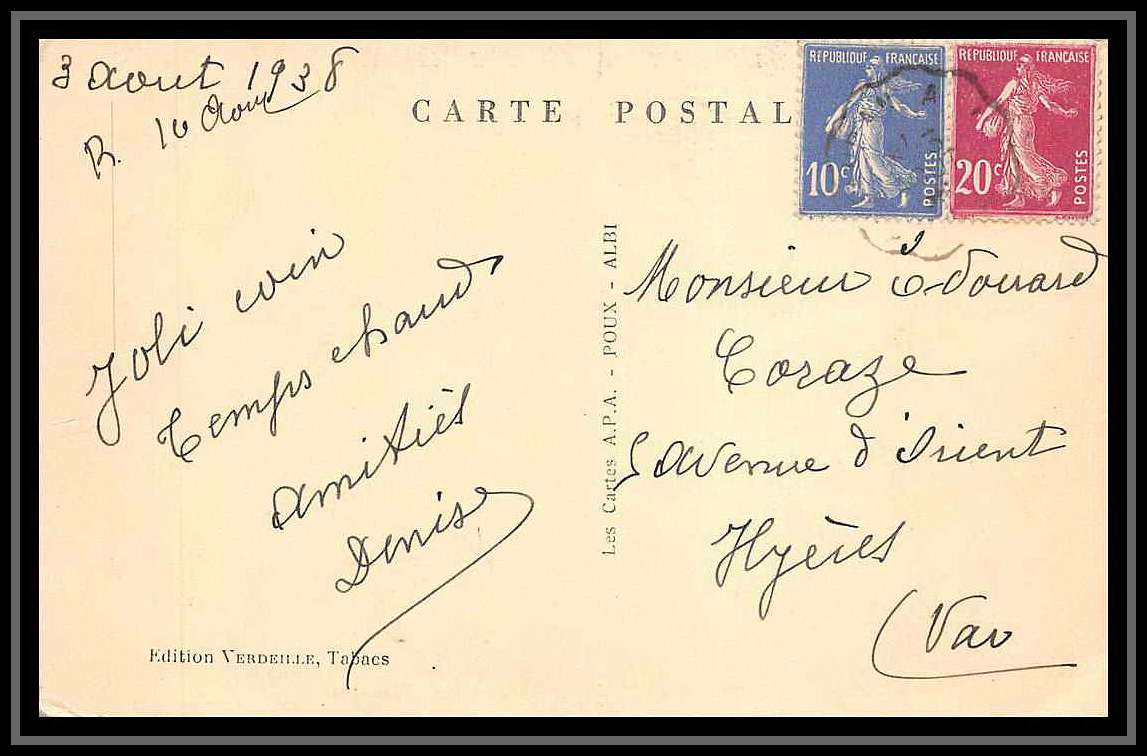 3 Aout 1938
R. 10 Aout
CARTE POSTAL
REPUBLIQUE FRANÇAISE
10c
POSTES
REPUBLIQUE FRANÇAISE
20c
POSTES
Joli coin
Temps chaud
Amitiés
Denise
Edition VERDEILLE, Tabacs
Les Cartes A.P.A. - POUX - ALBI
Monsieur Edouard
Coraze
5 Avenue d'Orient
Hyères
(Var